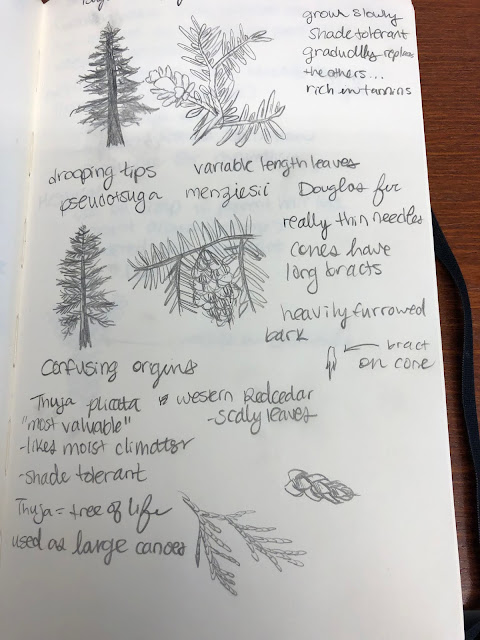 grow slowly
shade tolerant
gradually replaces
the others...
rich in tannins
drooping tips
variable length leaves
pseudotsuga menziesii Douglas fir
really thin needles
cones have
long bracts
heavily furrowed
bark
bract
on cone
confusing origins
Thuja plicata western Redcedar
"most valuable"
-scaly leaves
-likes moist climates
-shade tolerant
Thuja = tree of life
used as large canoes